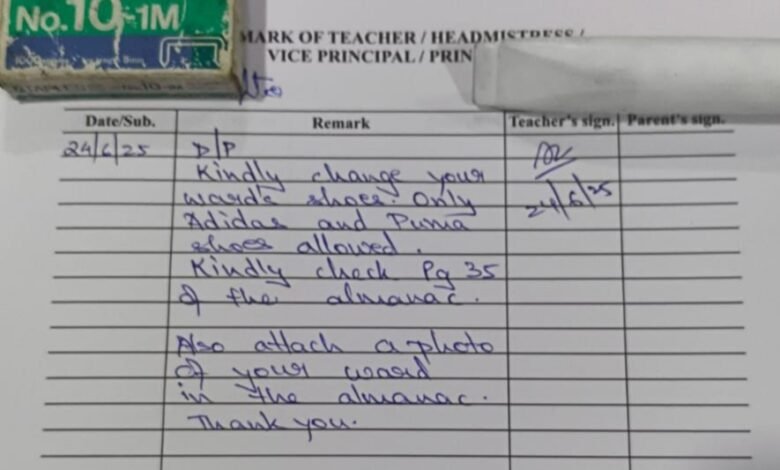 No.10-1M
MARK OF TEACHER / HEADMISTRESS /
VICE PRINCIPAL / PRIN
Date/Sub. Remark Teacher's sign. Parent's sign.
24/6/25 D/P
Kindly change your
ward's shoes. Only
Adidas and Puma 24/6/25
shoes allowed.
Kindly check Pg 35
of the almanac.
Also attach a photo
of your ward
in the almanac.
Thank you.